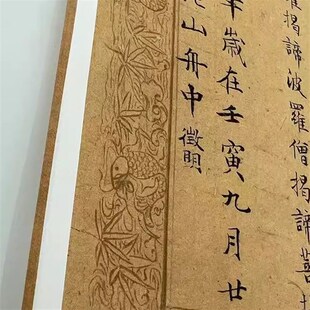 揭諦波羅僧揭諦菩
歲在壬寅九月廿
山舟中徵明